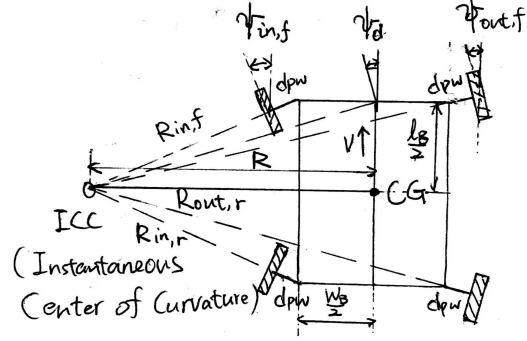 ψin,f ψd ψout,f
dpw dpw
Rin,f
V↑ lB/2
R
CG
Rout,r
ICC
Rin,r
(Instantaneous
Center of Curvature)
dpw dpw
WB/2